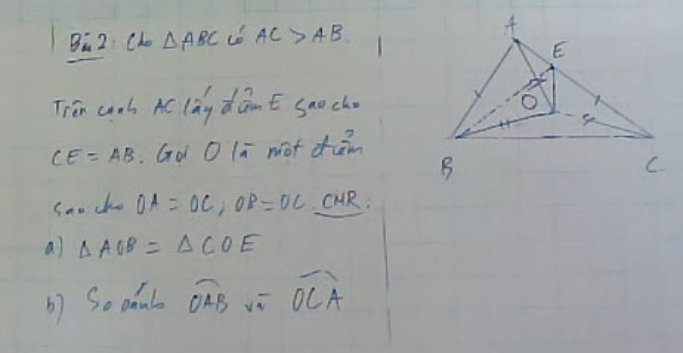 Bài 2: Cho ΔABC có AC > AB.
Trên cạnh AC lấy điểm E sao cho
CE = AB. Gọi O là một điểm
sao cho OA = OC, OB = OC. CMR:
a) ΔAOB = ΔCOE
b) So sánh OAB và OCA
A
E
O
B
C